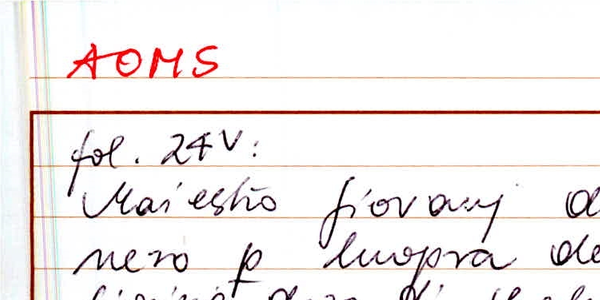 AOMS
fol. 24V:
Maiestro Giovanj d
nero p luopra de